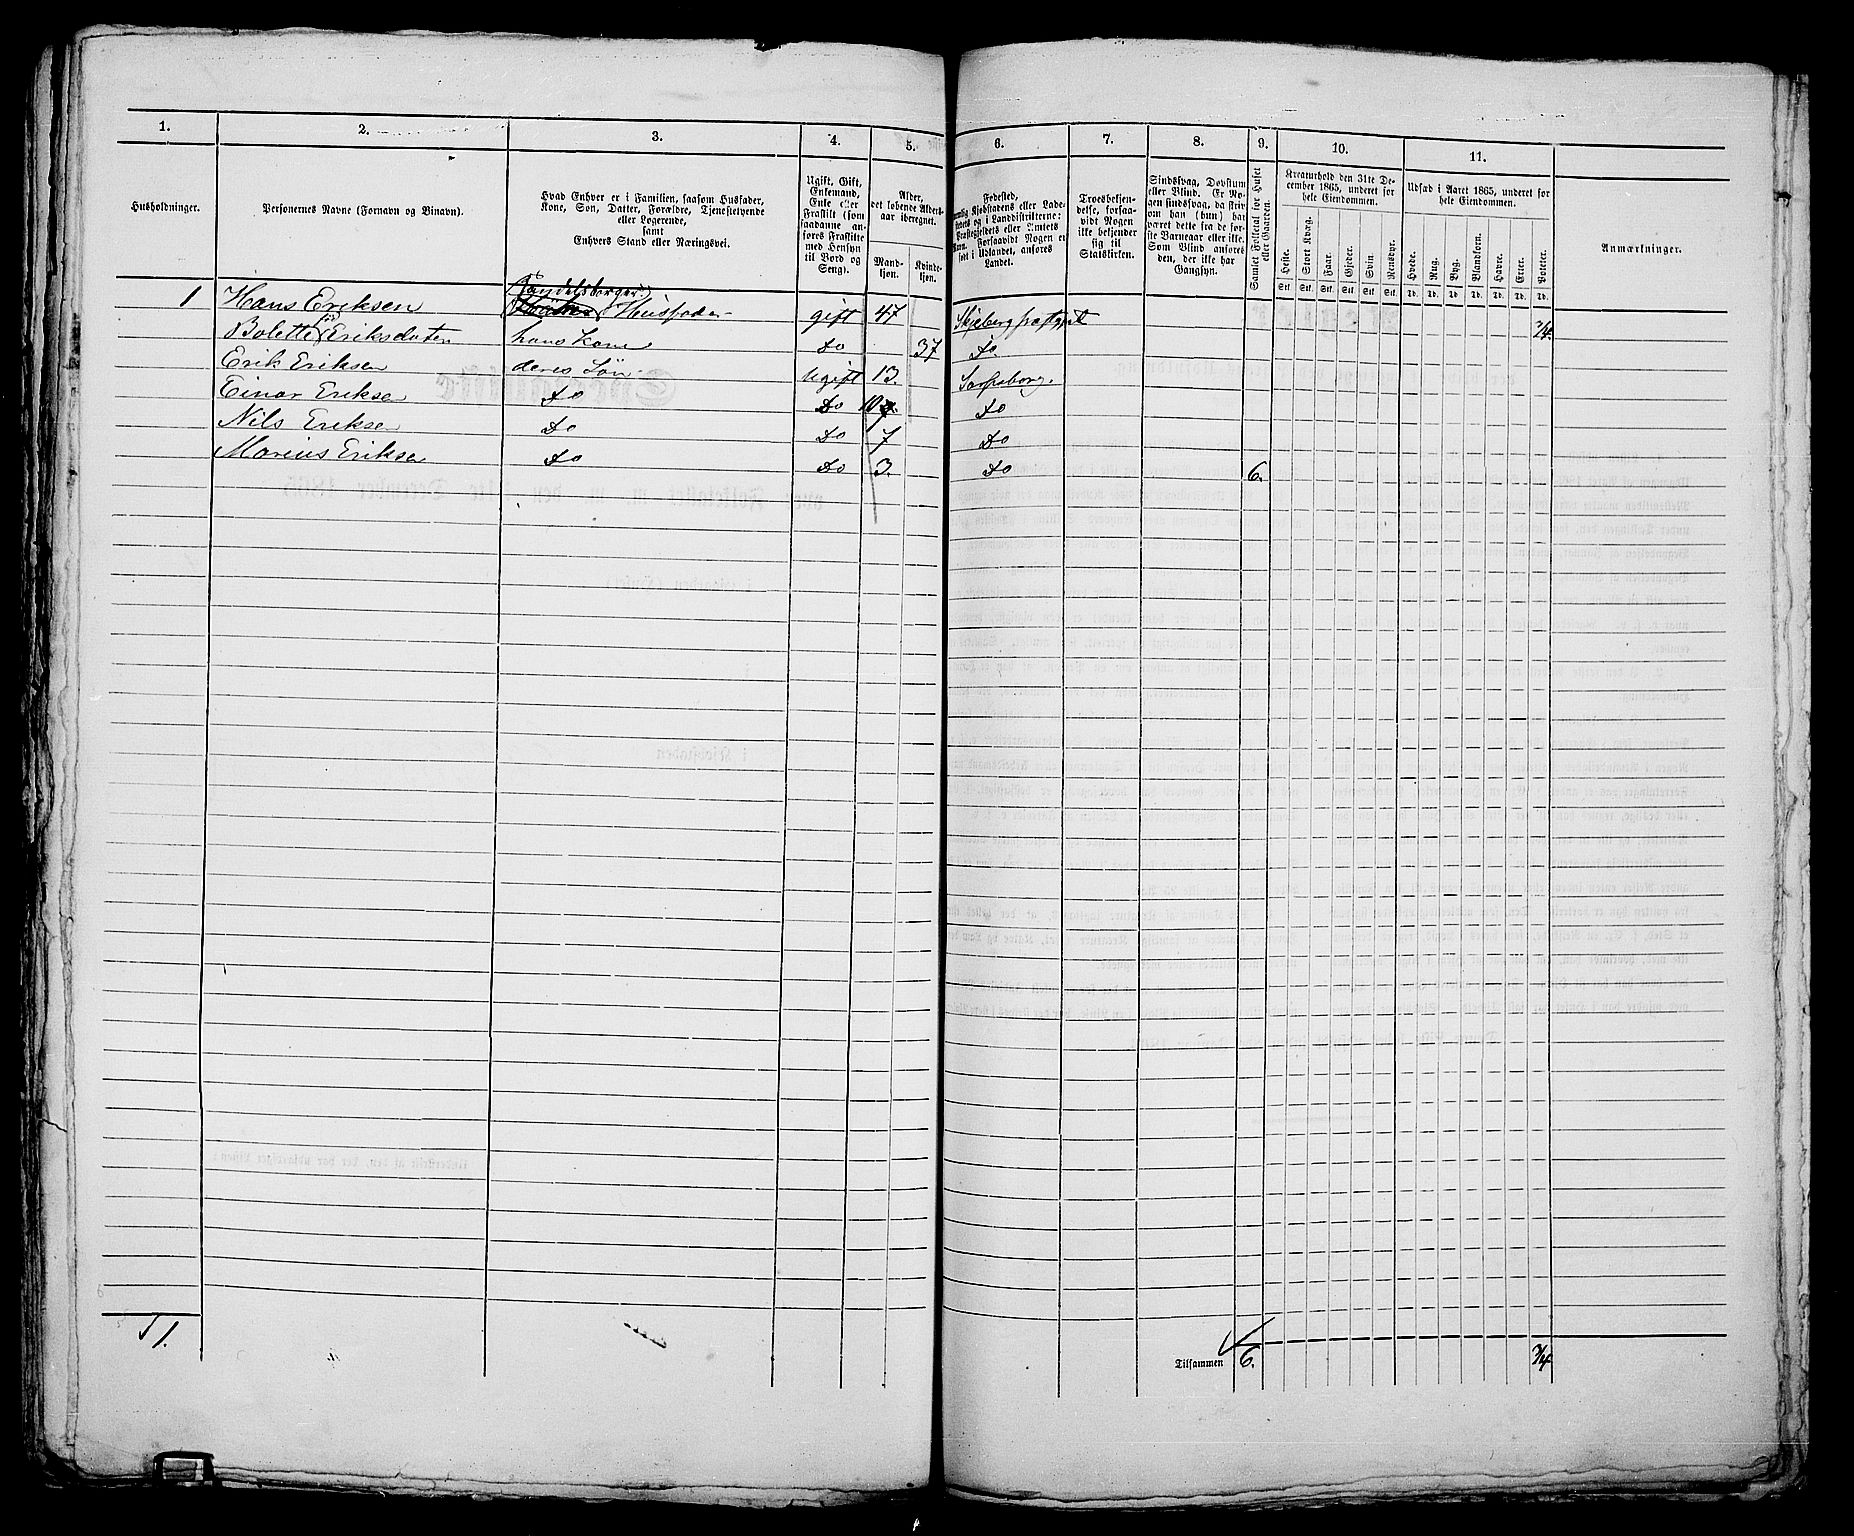 1. 2. 3. 4. 5. 6. 7. 8. 9. 10. 11.
Husholdninger.
Personernes Navne (Fornavn og Binavn).
Hvad Enhver er i Familien, saasom Husfader,
Kone, Søn, Datter, Forældre, Tjenestetyende
eller Logerende,
samt
Enhvers Stand eller Næringsvei.
Ugift, Gift,
Enkemand,
Enke eller
Fraskilt (som
saadanne an-
føres Fraskilte
med Hensyn
til Bord og
Seng).
Alder,
det løbende Alders-
aar iberegnet.
Mand-
kjøn.
Kvinde-
kjøn.
Fødested,
nemlig Kjøbstadens eller Lade-
stedets og i Landdistrikterne:
Præstegjeldets eller Amtets
Navn. Forsaavidt Nogen er
født i Udlandet, anføres
Landet.
Troesbekjen-
delse, forsaa-
vidt Nogen
ikke bekjender
sig til
Statskirken.
Sindssvag, Døvstum
eller Blind. Er No-
gen sindssvag, da skriv
om han (hun) har
været dette fra de før-
ste Barneaar eller ikke.
Som Blind anføres
den, der ikke har
Gangsyn.
Samlet Folketal for Huset
eller Gaarden.
Kreaturhold den 31te De-
cember 1865, underet for
hele Eiendommen.
Heste. Stort Kvæg. Faar. Gjeder. Svin. Rensdyr.
Stk. Stk. Stk. Stk. Stk. Stk.
Udsæd i Aaret 1865, underet for
hele Eiendommen.
Hvede. Rug. Byg. Blandkorn. Havre. Erter. Poteter.
Td. Td. Td. Td. Td. Td. Td.
Anmærkninger.
Handelsborger
1 Hans Eriksen Husfader gift 47 Skjeberg Præstgjæld 3/4
Bolette Eriksdatter hans Kone Do 37 Do
Erik Eriksen deres Søn Ugift 13. Sarpsborg.
Einar Eriksen Do Do 10 Do
Nils Eriksen Do Do 7 Do
Marius Eriksen Do Do 3. Do 6.
1.
Tilsammen 6. 3/4